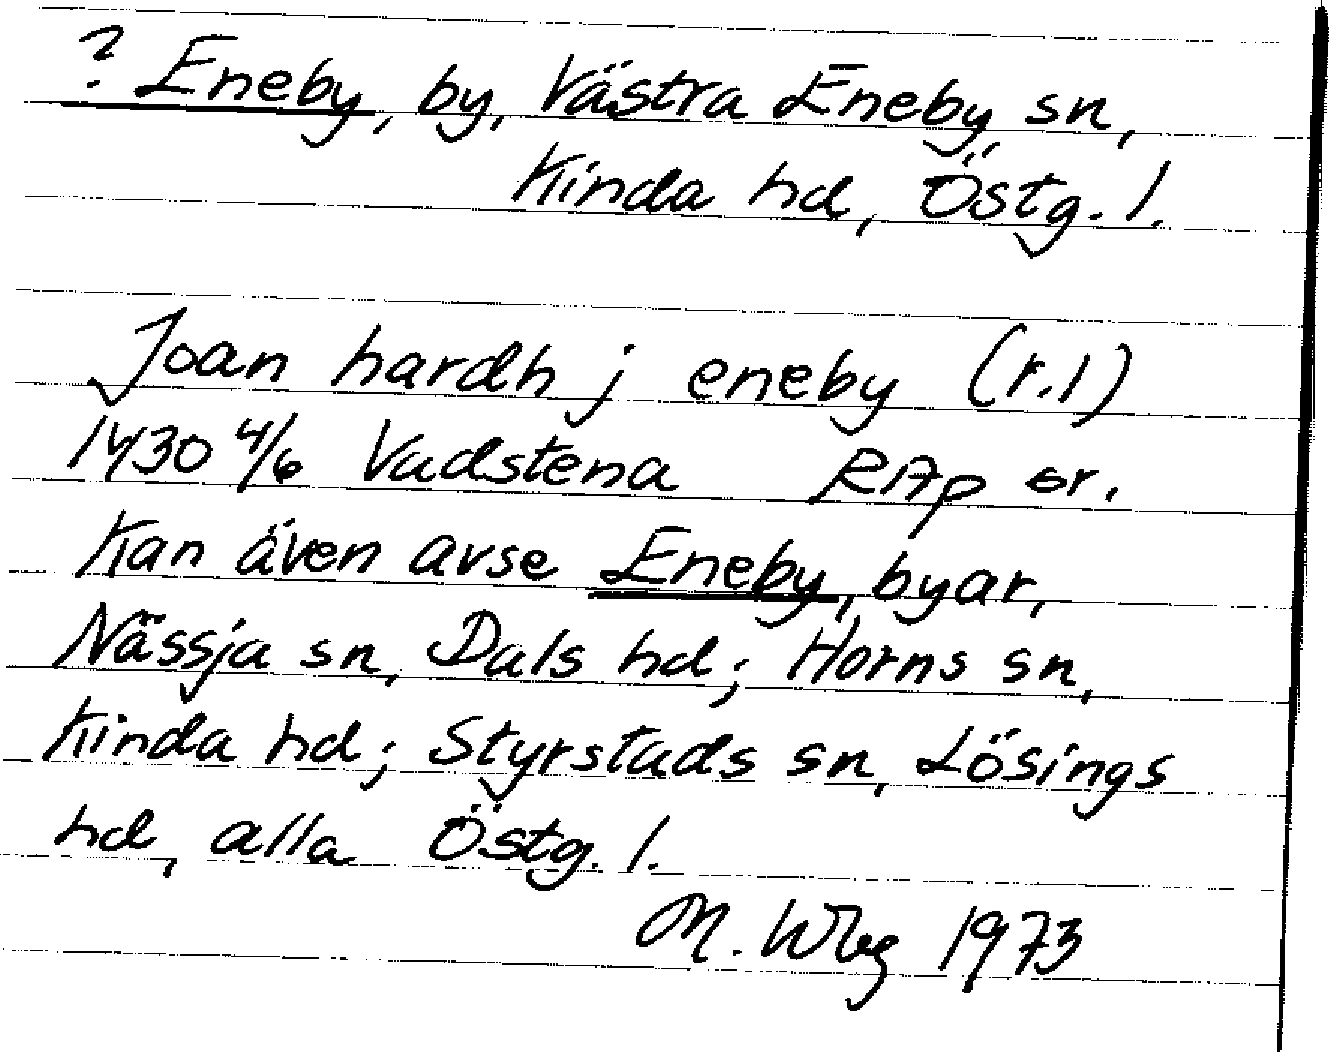 ? Eneby, by, Västra Eneby sn,
Kinda hd, Östg. l.
Joan hardh j eneby (r. 1)
1430 4/6 Vadstena RAp or.
Kan även avse Eneby, byar,
Nässja sn, Dals hd; Horns sn,
Kinda hd; Styrstads sn, Lösings
hd, alla Östg. l.
M. Wbg 1973